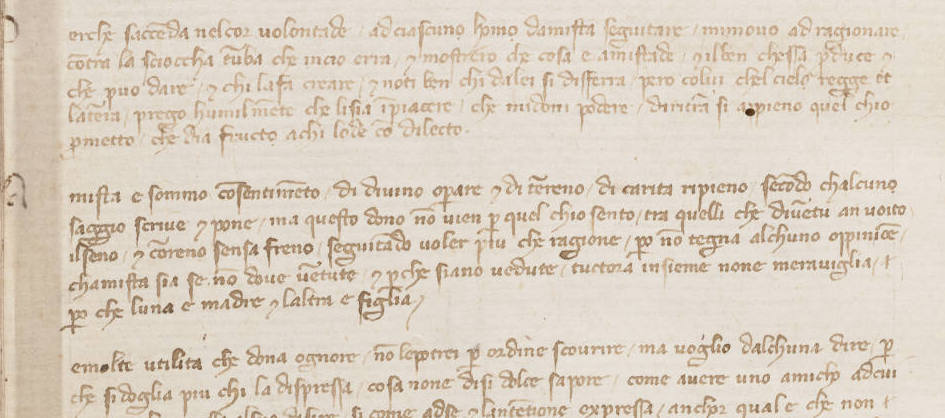 erche saccēda nel cor volontade / ad ciascuno homo damista seguitare / mi movo ad ragionare /
cōtra la scioccha tūba che in cio erra / et mostrero che cosa e amistade / et il ben chessa pduce et
che puo dare / et chi la fa creare / et noti ben chi da lei si disferra / pero colui chel cielo regge et
la terra / prego humilmēte che li sia ī piacere / che mi doni podere / di si appieno quel chio
pmetto / che dia fructo a chi lode cō dilecto .
mista e sommo cōsentimēto / di divino operare et di terreno / di carita ripieno / secōdo chalcuno
saggio scrive et pone / ma questo dono nō vien p quel chio sento / tra quelli che āno voito
il seno / et cōreno sensa freno / seguitādo voler piu che ragione / po nō tegna alchuno oppinione /
chamista sia se nō dove vētute / et pche siano vedute / tuctora insieme none meraviglia /
po che luna e madre et laltra e figlia /
e molte utilita che dona ognore / nō le potrei p ordine scourire / ma voglio dalchuna dire / p
che si doglia piu chi la dispressa / cosa none di si dolce sapore / come avere uno amicho ad cui
si come ad se la expressa / anchor qual e che non